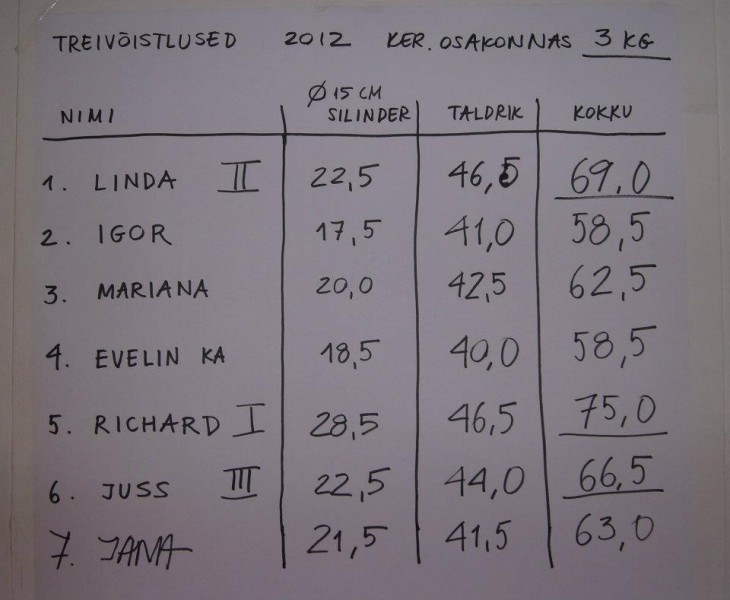 TREIVÕISTLUSED 2012 KER. OSAKONNAS 3 KG
NIMI Ø 15 CM SILINDER TALDRIK KOKKU
1. LINDA II 22,5 46,5 69,0
2. IGOR 17,5 41,0 58,5
3. MARIANA 20,0 42,5 62,5
4. EVELIN KA 18,5 40,0 58,5
5. RICHARD I 28,5 46,5 75,0
6. JUSS III 22,5 44,0 66,5
7. JANA 21,5 41,5 63,0